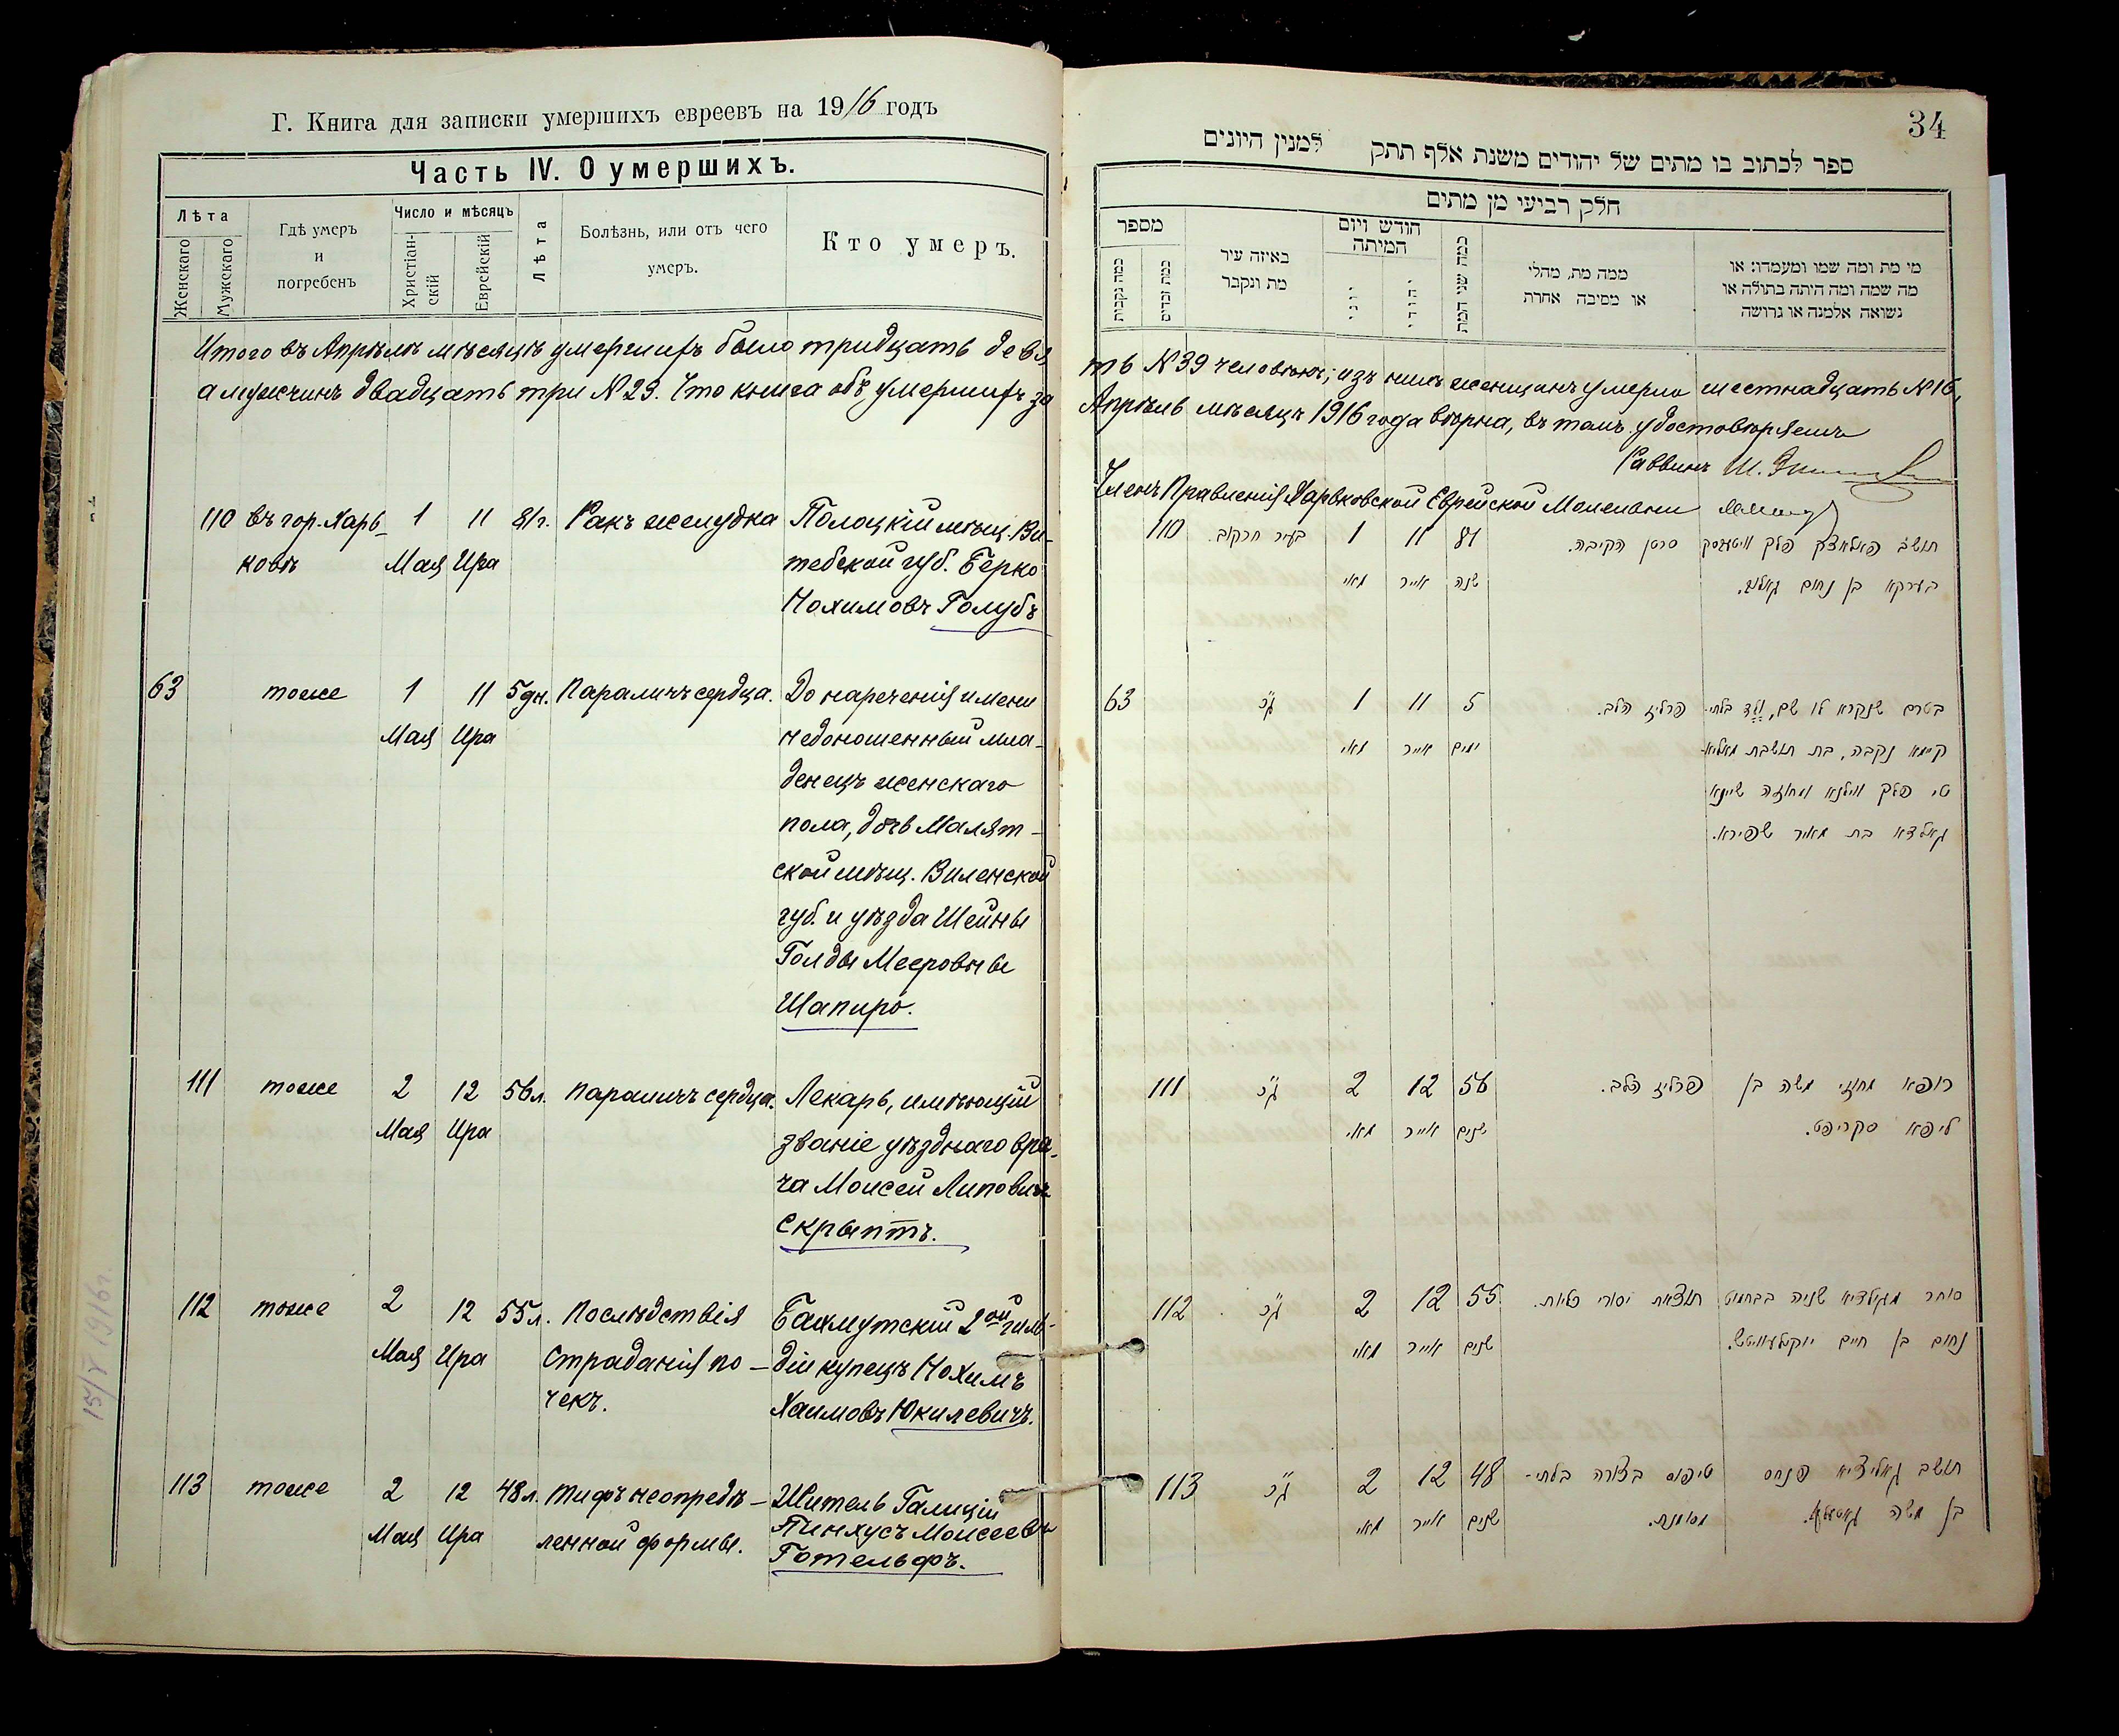 Г. Книга для записки умершихъ евреевъ на 1916 годъ
Часть IV. О умершихъ.
Лѣта
Женскаго
Мужскаго
Гдѣ умеръ
и
погребенъ
Число и мѣсяцъ
Христіан-
скій
Еврейскій
Лѣта
Болѣзнь, или отъ чего
умеръ.
Кто умеръ.
Итого въ Апрѣлѣ мѣсяцѣ умершихъ было тридцать девя
а мужчинъ двадцать три №23. Что книга объ умершихъ за
110 въ гор. Харь- 1 11 81г. Ракъ желудка Полоцкій мѣщ. Ви-
ковѣ Мая Ира тебской губ. Берко
Нохимовъ Голубъ
63 тоже 1 11 5дн. Параличъ сердца. До нареченія имени
Мая Ира недоношенный мла-
денецъ женскаго
пола, дочь Малят-
ской мѣщ. Виленской
губ. и уѣзда Шейны
Голды Мееровны
Шапиро.
111 тоже 2 12 56л. Параличъ сердца. Лекарь, имѣющій
Мая Ира званіе уѣзднаго вра-
ча Моисей Липовичъ
Скрыптъ.
112 тоже 2 12 55л. Послѣдствія Бахмутскій 2ой гиль-
Мая Ира страданія по- діи купецъ Нохимъ
чекъ. Хаимовъ Юкилевичъ.
113 тоже 2 12 48л. Тифъ неопредѣ- Житель Галиціи
Мая Ира ленной формы. Пинхусъ Моисеевъ
Готельфъ.
15/V 1916г.
34
ספר לכתוב בו מתים של יהודים משנת אלף תתק למנין היונים
חלק רביעי מן מתים
מספר
כמה נקבות
כמה זכרים
באיזה עיר
מת ונקבר
חודש ויום
המיתה
יוני
יהודי
כמה שני המת
ממה מת, מהלי
או מסיבה אחרת
מי מת ומה שמו ומעמדו: או
מה שמה ומה היתה בתולה או
נשואה אלמנה או גרושה
ть №39 человѣкъ; изъ нихъ женщинъ умерло шестнадцать №16,
Апрѣль мѣсяцъ 1916 года вѣрна, въ томъ удостовѣряемъ
Раввинъ Ш.
Членъ Правленія Харьковской Еврейской Молельни
110 בעיר חרקוב. 1 11 81 סרטן הקיבה. תושב פאלאצק פלך וויטעבסק
מאי אייר שנה בערקא בן נחום גאלוב.
63 ג״כ 1 11 5 פרליז הלב. בטרם שנקרא לו שם, ולד בלתי-
מאי אייר ימים קימא נקבה, בת תושבת מאליא-
טי פלך ווילנא ומחוזה שיינא
גאלדא בת מאיר שפירא.
111 ג״כ 2 12 56 פרליז הלב. רופא מחוזי משה בן
מאי אייר שנים ליפא סקריפט.
112 ג״כ 2 12 55 תוצאת יסורי כליות. סוחר מגילדיא שניה בבחמוט
מאי אייר שנים נחום בן חיים יוקילעוויטש.
113 ג״כ 2 12 48 טיפוס בצורה בלתי- תושב גאליציא פנחס
מאי אייר שנים מסומנת. בן משה